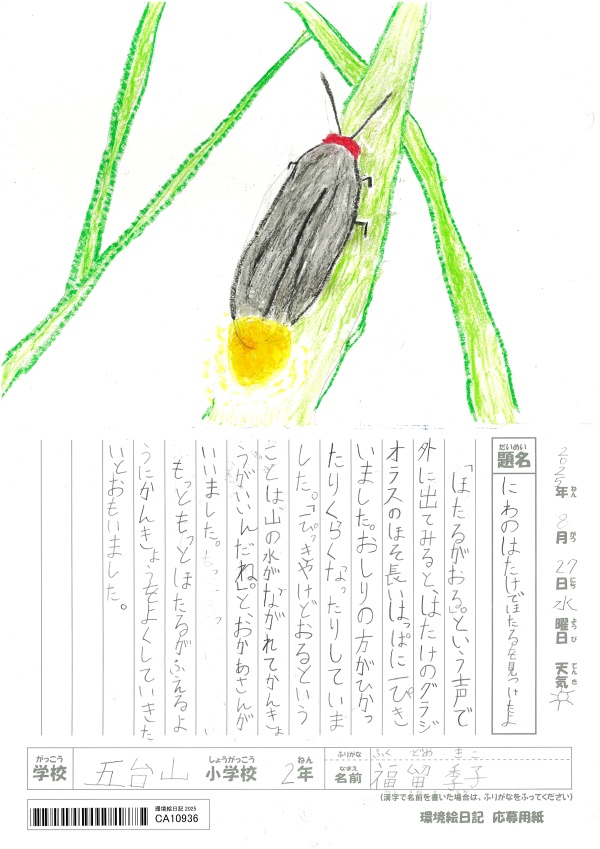 2025年ねん 8月がつ 27日にち 水曜日ようび 天気てんき
だいめい
題名
にわのはたけでほたるを見つけたよ
「ほたるがおる。」という声で
外に出てみると、はたけのグラジ
オラスのほそ長いはっぱに一ぴき
いました。おしりの方がひかっ
たりくらくなったりしていま
した。「一ぴきやけどおるという
ことは、山の水がながれてかんきょ
うがいいんだね。」と、おかあさんが
いいました。
もっともっとほたるがふえるよ
うにかんきょうをよくしていきた
いとおもいました。
がっこう
学校
五台山
しょうがっこう
小学校
2年ねん
ふりがな
ふく どめ きこ
なまえ
名前
福留 季子
(漢字で名前を書いた場合は、ふりがなをふってください)
環境絵日記 2025
CA10936
環境絵日記 応募用紙